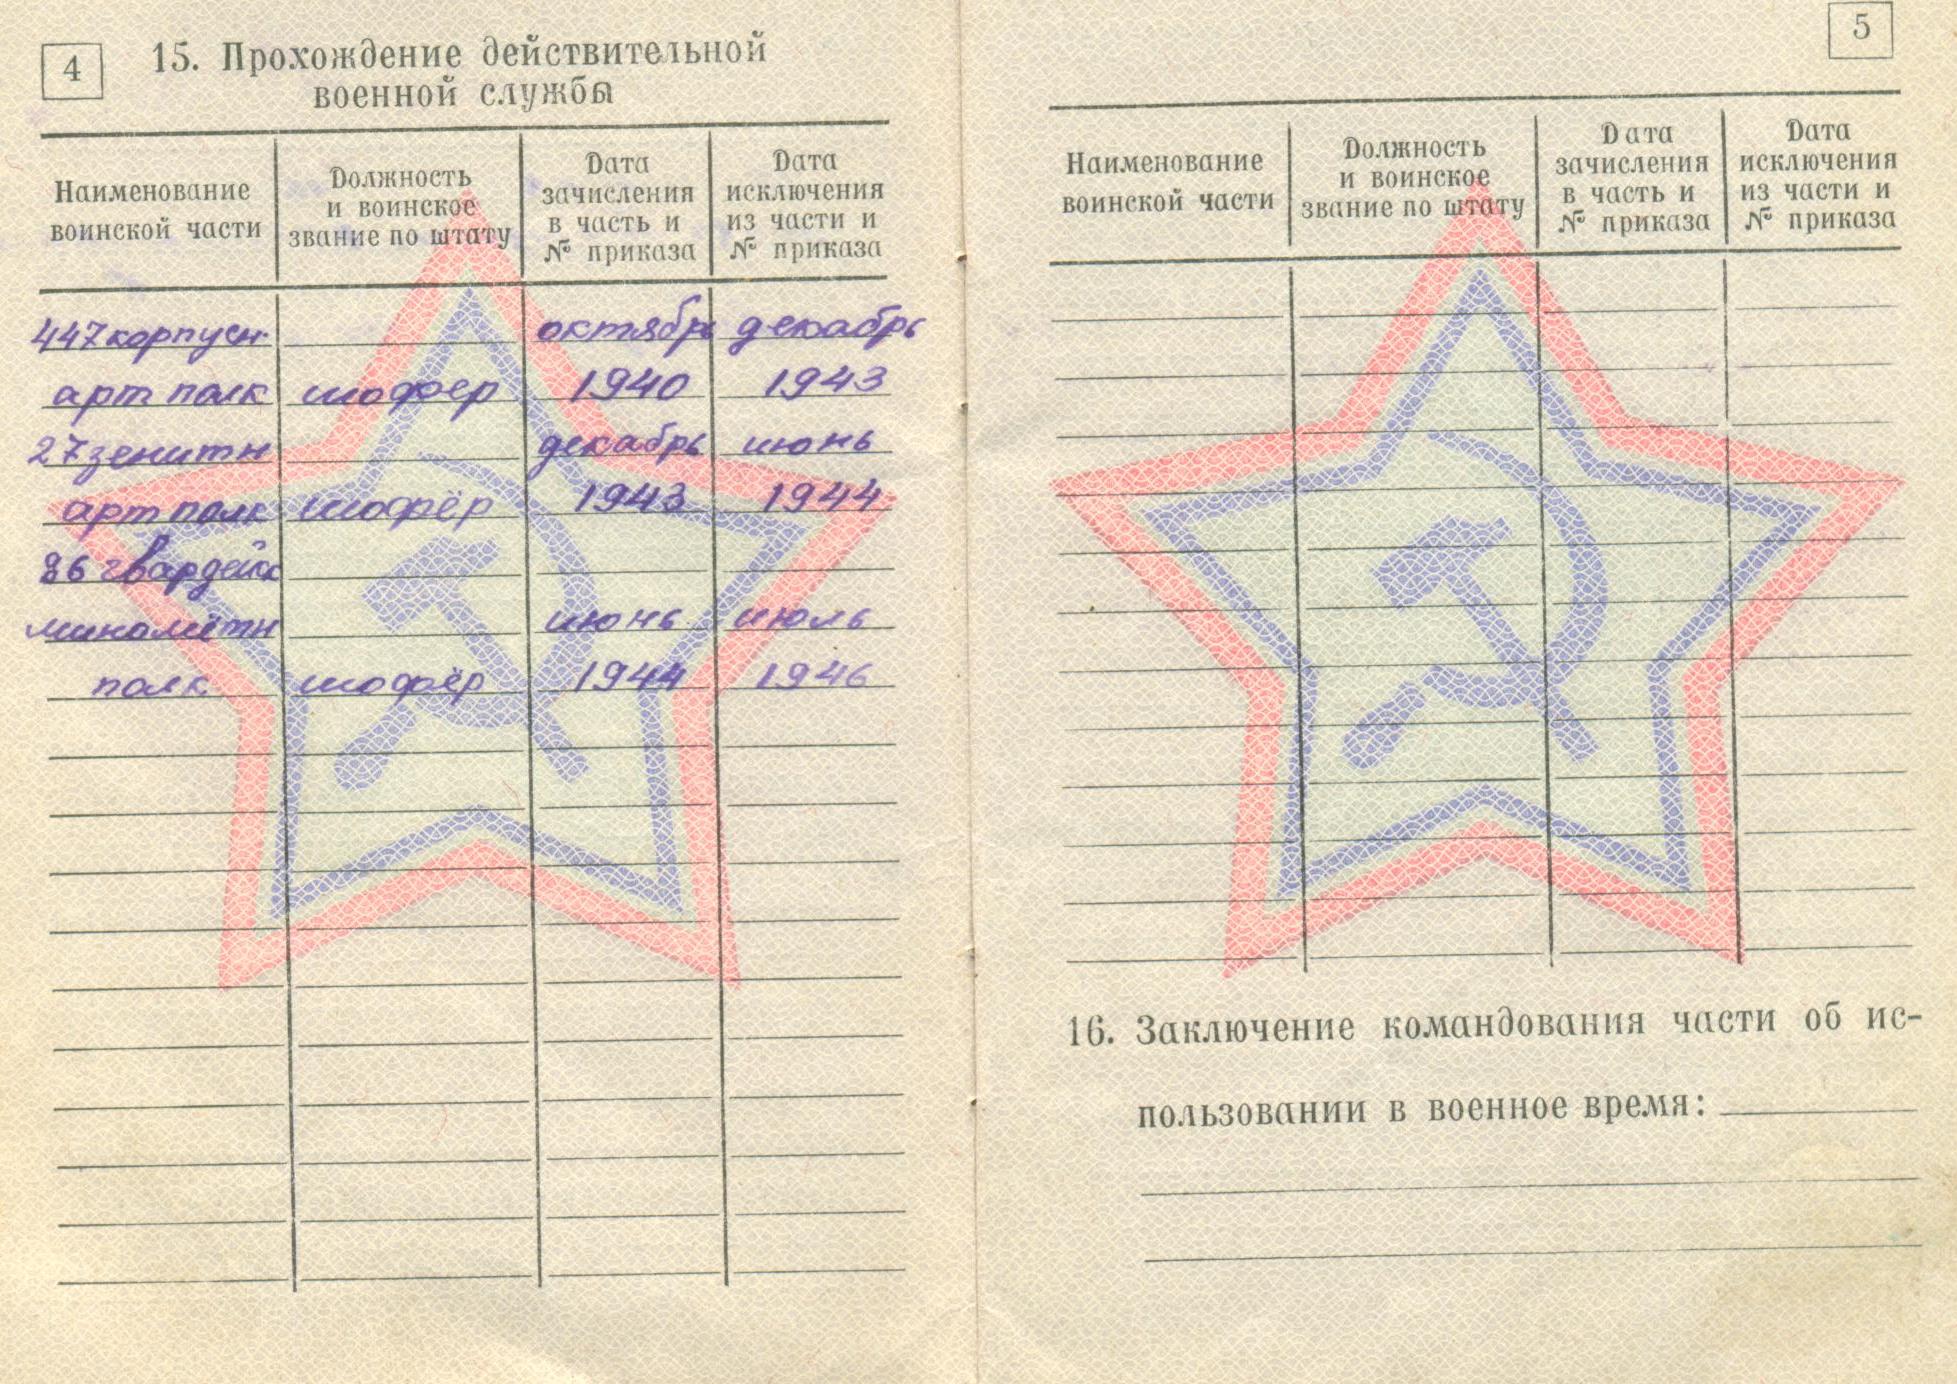 4
15. Прохождение действительной
военной службы
Наименование воинской части | Должность и воинское звание по штату | Дата зачисления в часть и № приказа | Дата исключения из части и № приказа
447 корпусн. октябрь декабрь
арт полк шофер 1940 1943
27 зенитн декабрь июнь
арт полк шофёр 1943 1944
86 гвардейск
миномётн июнь июль
полк шофёр 1944 1946
5
Наименование воинской части | Должность и воинское звание по штату | Дата зачисления в часть и № приказа | Дата исключения из части и № приказа
16. Заключение командования части об ис-
пользовании в военное время: